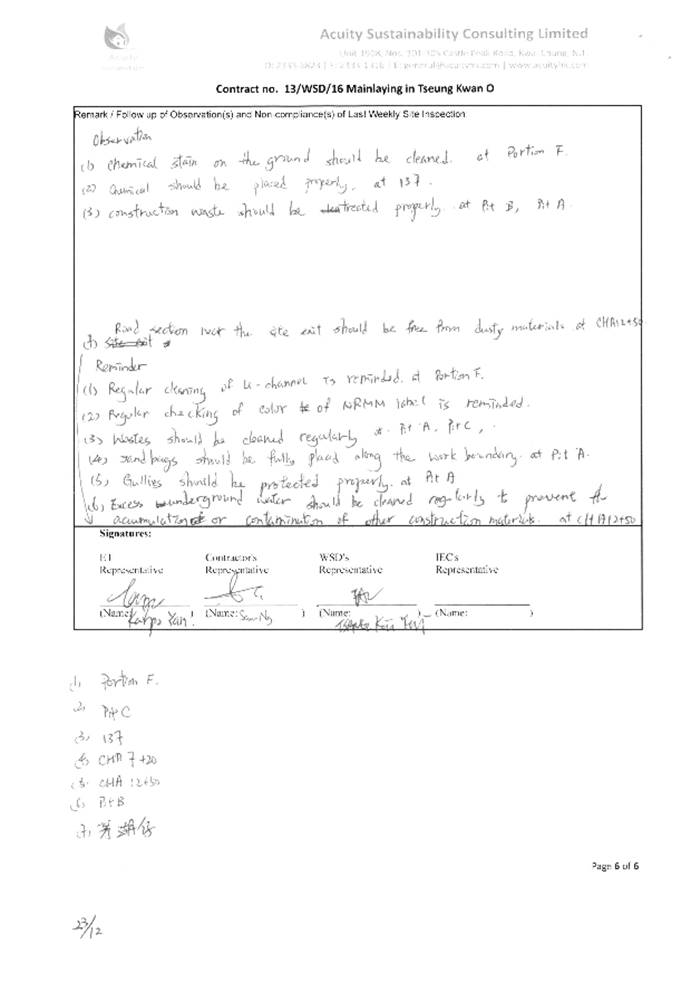 Acuity Sustainability Consulting Limited
Unit 1908, Nos. 301-305 Castle Peak Road, Kwai Chung, N.T.
Contract no. 13/WSD/16 Mainlaying in Tseung Kwan O
Remark / Follow up of Observation(s) and Non-compliance(s) of Last Weekly Site Inspection
Observation
(1) Chemical stain on the ground should be cleaned. at Portion F.
(2) Chemical should be placed properly, at 137.
(3) construction waste should be treated properly. at Pit B, Pit A.
Road section near the site exit should be free from dusty materials at CHA12+50
Reminder
(1) Regular cleaning of U-channel is reminded. at Portion F.
(2) Regular checking of color of NRMM label is reminded.
(3) Wastes should be cleaned regularly at Pit A, Pit C,
(4) sandbags should be fully placed along the work boundary. at Pit A.
(5) Gullies should be protected properly. at Pit A
(6) Excess underground water should be cleaned regularly to prevent the
accumulation or contamination of other construction materials. at CHA12+50
Signatures:
ET Contractor's WSD's IEC's
Representative Representative Representative Representative
(Name: Yan ) (Name: Sam Ng ) (Name: ) (Name: )
(1) Portion F.
(2) Pit C
(3) 137
CHA 7+20
CHA 12+50
(6) Pit B
Page 6 of 6
23/12